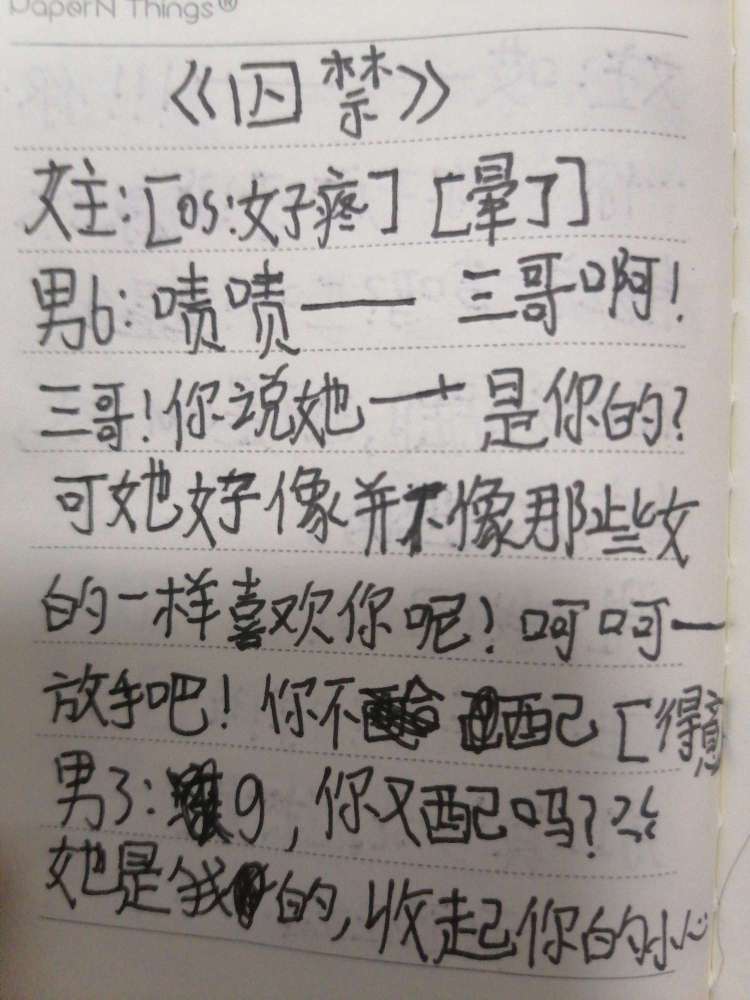 PaperN Things®
《囚禁》
女主:[os:好疼][晕了]
男6:啧啧—— 三哥啊!
三哥!你说她——是你的?
可她好像并不像那些女
的一样喜欢你呢!呵呵—
放手吧!你不 配[得意
男3: 9,你又配吗?
她是我的,收起你的小心